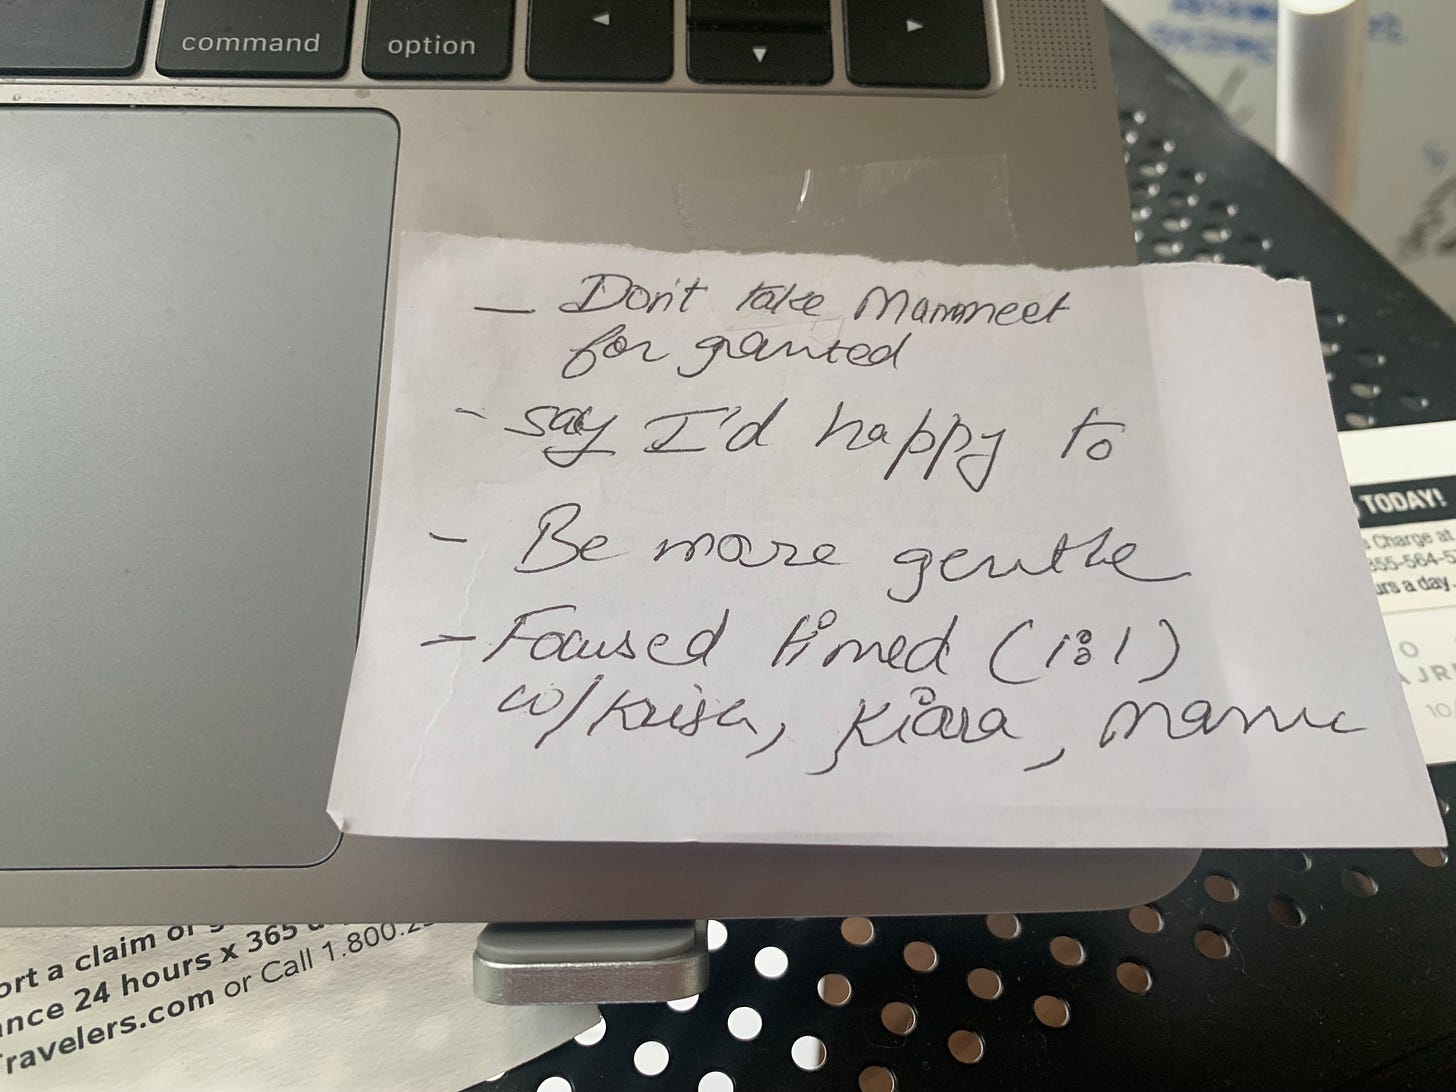 command
option
◄
▼
►
— Don't take Manmeet
for granted
- say I'd happy to
- Be more gentle
- Focused timed (1:1)
w/Krish, Kiara,
TODAY!
Charge at
urs a day.
ort a claim
nce 24 hours x 365
ravelers.com or Call 1.800.2